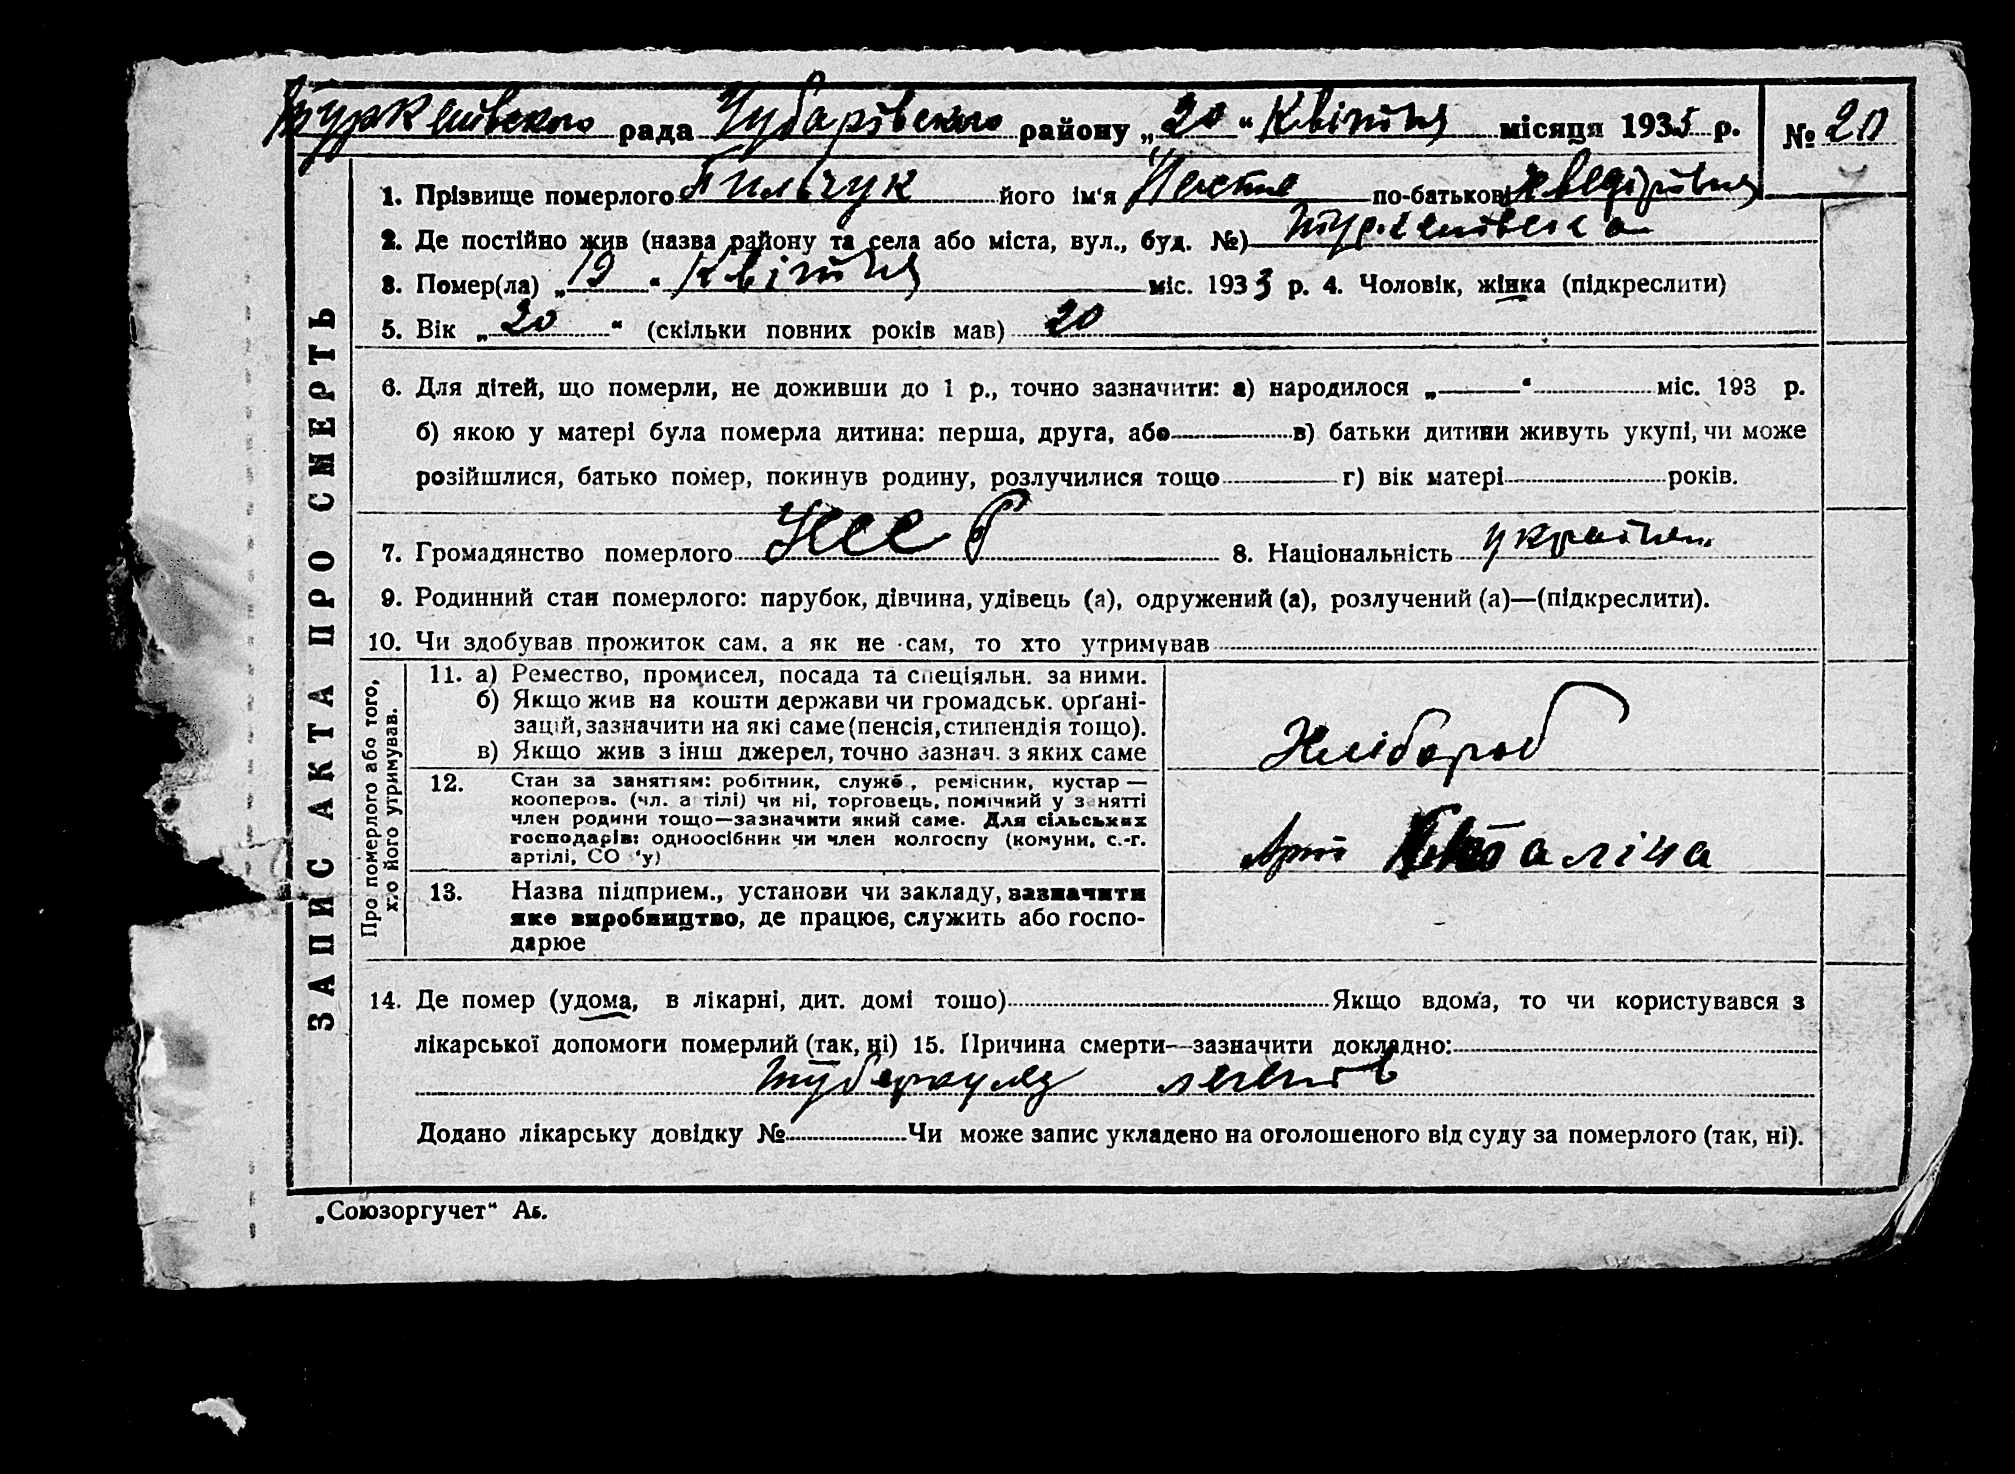 Туркенівского рада Чубарівского району „20“ Квітня місяця 1933 р. № 20
ЗАПИС АКТА ПРО СМЕРТЬ
1. Прізвище померлого Пильчук його ім‘я по-батькові
2. Де постійно жив (назва району та села або міста, вул., буд. №) Туркеновска
3. Помер(ла) „19“ Квітня міс. 1933 р. 4. Чоловік, жінка (підкреслити)
5. Вік „20“ (скільки повних років мав) 20
6. Для дітей, що померли, не доживши до 1 р., точно зазначити: а) народилося „ “ міс. 193 р.
б) якою у матері була померла дитина: перша, друга, або в) батьки дитини живуть укупі, чи може
розійшлися, батько помер, покинув родину, розлучилися тощо г) вік матері років.
7. Громадянство померлого УССР 8. Національність україн.
9. Родинний стан померлого: парубок, дівчина, удівець (а), одружений (а), розлучений (а)—(підкреслити).
10. Чи здобував прожиток сам, а як не сам, то хто утримував
Про померлого або того,
хто його утримував.
11. а) Ремество, промисел, посада та спеціяльн. за ними.
б) Якщо жив на кошти держави чи громадськ. орґані-
зацій, зазначити на які саме (пенсія, стипендія тощо).
в) Якщо жив з інш джерел, точно зазнач. з яких саме
Хлібороб
12. Стан за заняттям: робітник, службо, ремісник, кустар —
кооперов. (чл. артілі) чи ні, торговець, помічний у занятті
член родини тощо—зазначити який саме. Для сільських
господарів: одноосібник чи член колгоспу (комуни, с.-г.
артілі, СО у)
Арті Сталіна
13. Назва підприєм., установи чи закладу, зазначити
яке виробництво, де працює, служить або госпо-
дарює
14. Де помер (удома, в лікарні, дит. домі тощо) Якщо вдома, то чи користувався з
лікарської допомоги померлий (так, ні) 15. Причина смерти—зазначити докладно:
туберкулез легенів
Додано лікарську довідку № Чи може запис укладено на оголошеного від суду за померлого (так, ні).
„Союзоргучет“ Аб.